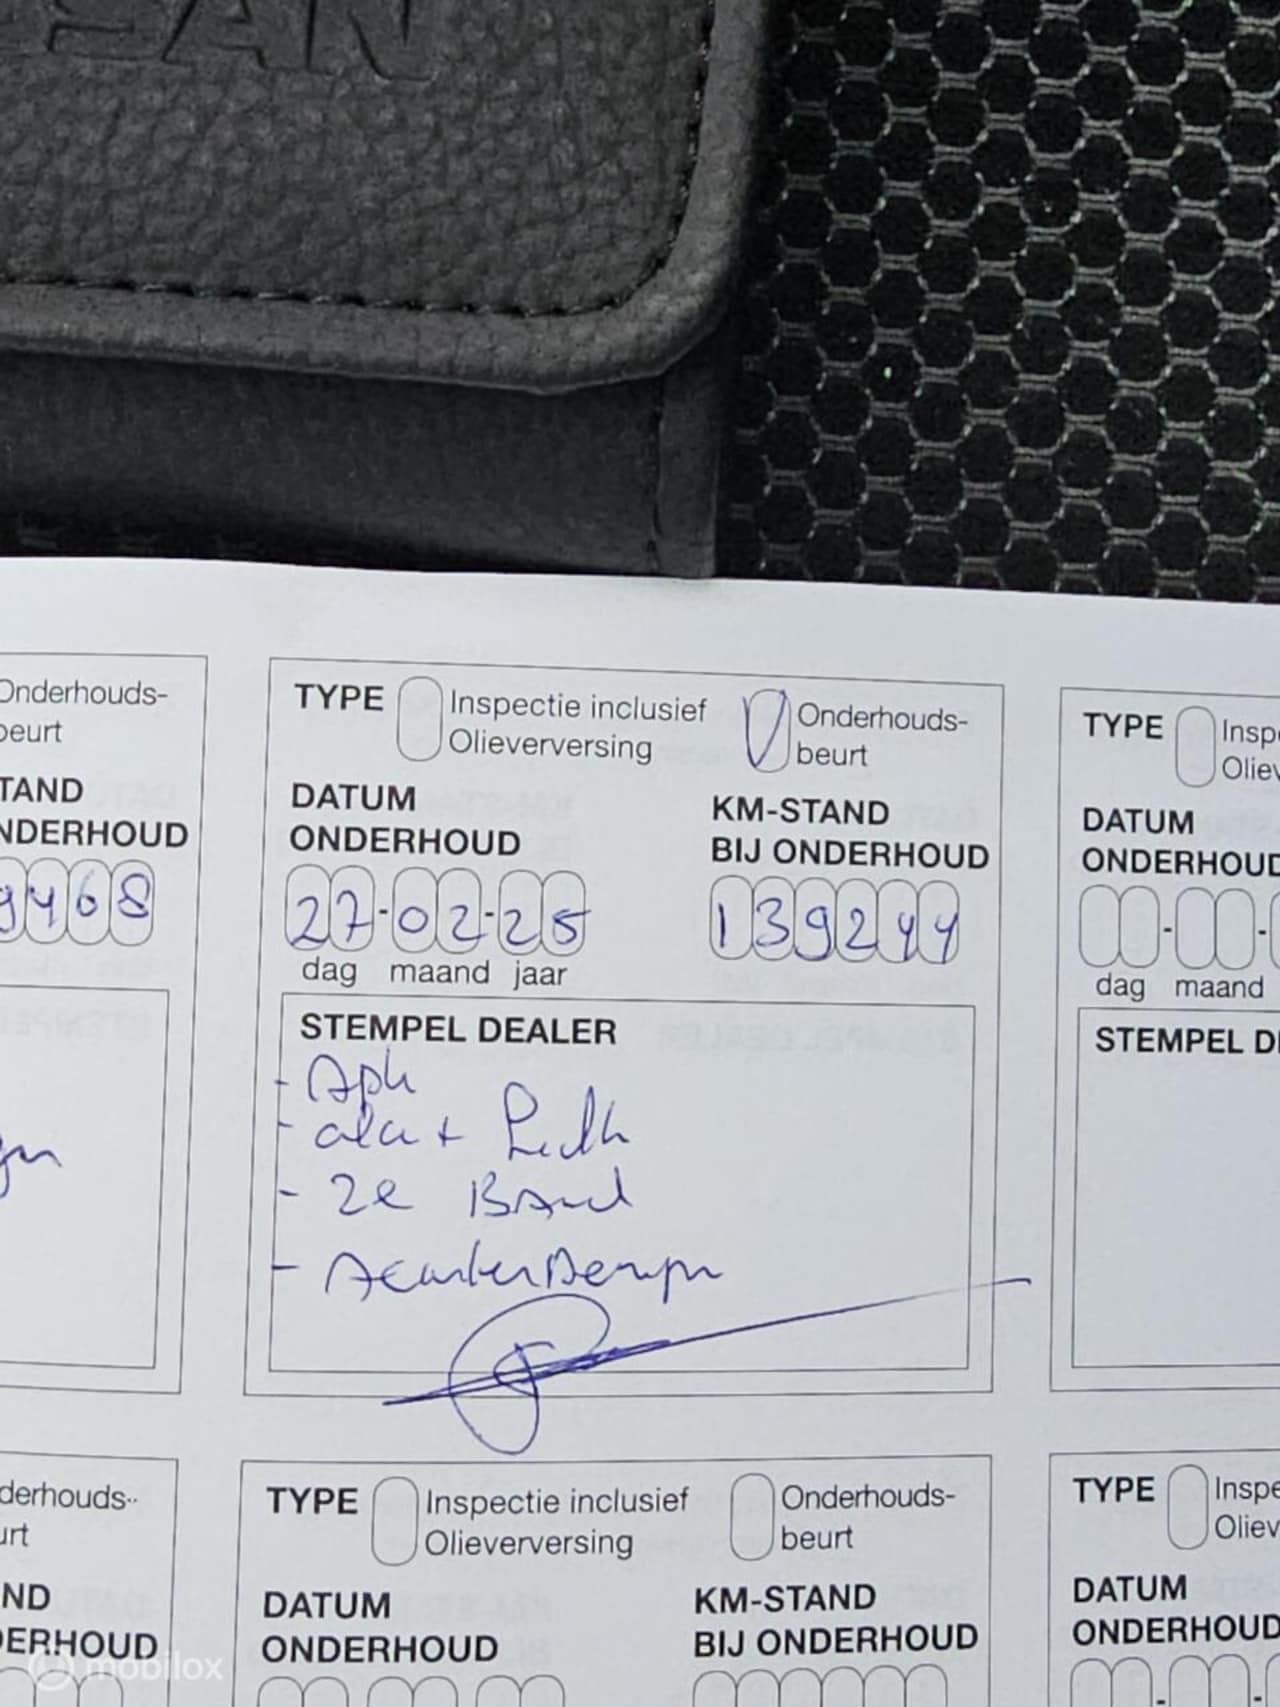 Onderhouds-
beurt
TAND
NDERHOUD
9468
TYPE Inspectie inclusief Olieverversing Onderhouds-beurt
DATUM ONDERHOUD
27-02-25
dag maand jaar
KM-STAND BIJ ONDERHOUD
139244
STEMPEL DEALER
- Apk
- olie +
- 2e Band
-
TYPE Insp
Oliev
DATUM
ONDERHOUD
dag maand
STEMPEL D
derhouds-
urt
ND
DERHOUD
TYPE Inspectie inclusief Olieverversing Onderhouds-beurt
DATUM ONDERHOUD
KM-STAND BIJ ONDERHOUD
TYPE Inspe
Oliev
DATUM
ONDERHOUD
mobilox